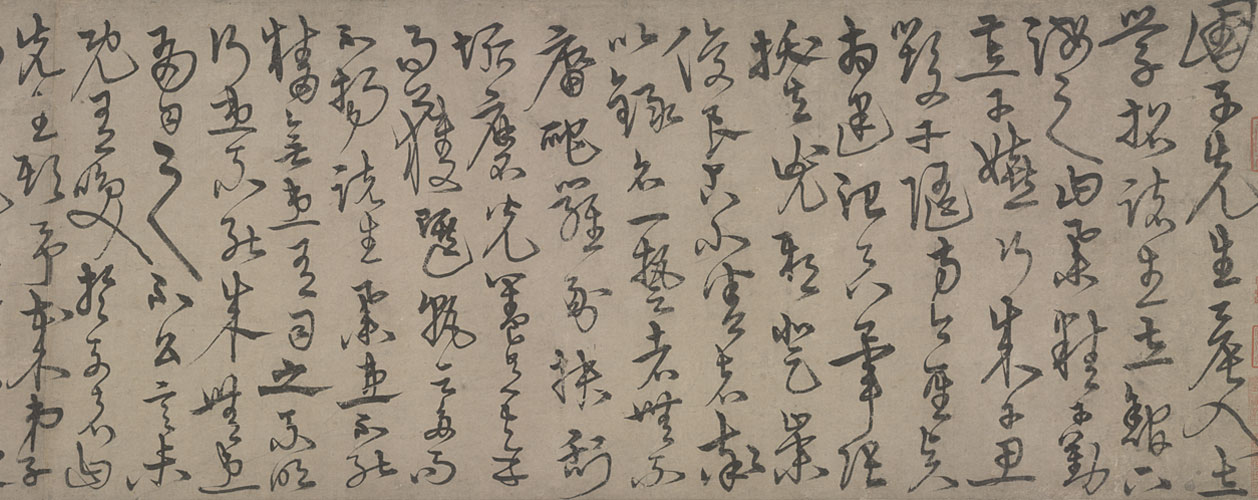 國子先生晨入太
學招諸生立館下
誨之曰業精于勤
荒于嬉行成于思
毀于隨方今聖賢
相逢治具畢張
拔去兇邪登崇
俊良占小善者率
以錄名一藝者無不
庸爬羅剔抉刮
垢磨光蓋有幸
而獲選孰云多而
不揚諸生業患不能
精無患有司之不明
行患不能成無患
有司之不公言未
既有笑於列者曰
先生欺予哉弟子